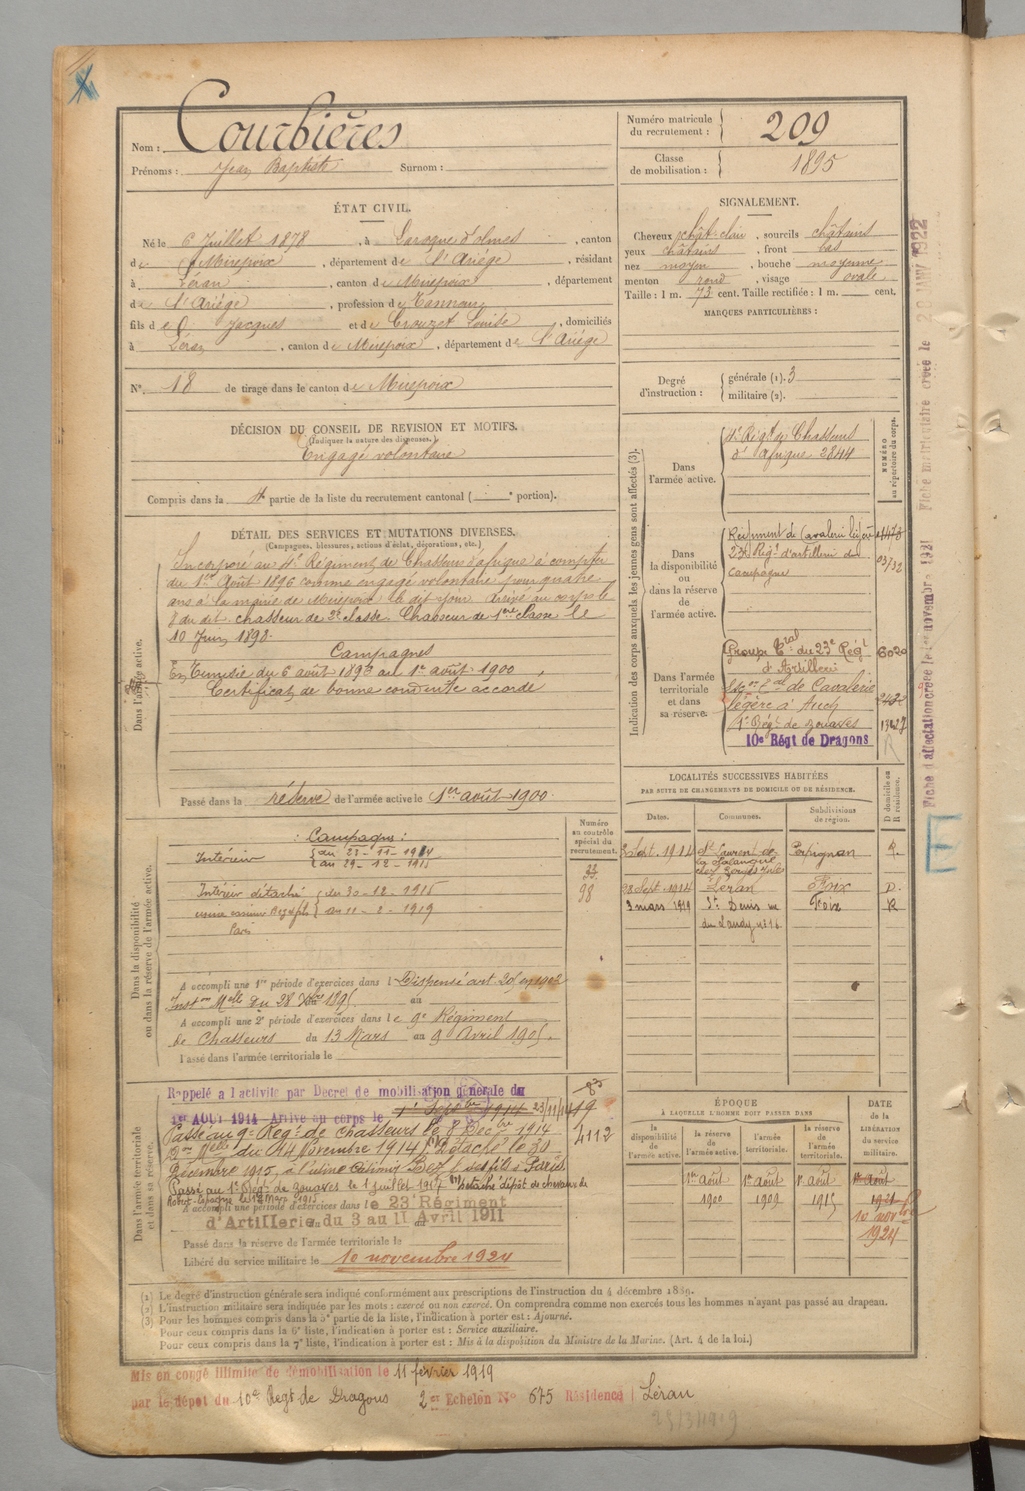 Nom : Courbières
Prénoms : Jean Baptiste Surnom :
Numéro matricule du recrutement : 209
Classe de mobilisation : 1895
ÉTAT CIVIL.
Né le 6 Juillet 1878, à Laroque d'olmes, canton
de Mirepoix, département de l'Ariège, résidant
à Léran, canton de Mirepoix, département
de l'Ariège, profession de Tanneur
fils de Jacques et de Crouzet Louise, domiciliés
à Léran, canton de Mirepoix, département de l'Ariège
N° 18 de tirage dans le canton de Mirepoix
SIGNALEMENT.
Cheveux chât-clair, sourcils châtains
yeux châtains, front bas
nez moyen, bouche moyenne
menton rond, visage ovale
Taille : 1 m. 73 cent. Taille rectifiée : 1 m. cent.
MARQUES PARTICULIÈRES :
Degré d'instruction : générale (1). 3
militaire (2).
DÉCISION DU CONSEIL DE REVISION ET MOTIFS.
(Indiquer la nature des dispenses.)
Engagé volontaire
Compris dans la 4e partie de la liste du recrutement cantonal ( e portion).
DÉTAIL DES SERVICES ET MUTATIONS DIVERSES.
(Campagnes, blessures, actions d'éclat, décorations, etc.)
Dans l'armée active.
Incorporé au 4e Régiment de Chasseurs d'afrique à compter
du 1er Août 1896 comme engagé volontaire pour quatre
ans à la mairie de Mirepoix le dit jour. Arrivé au corps le
8 du dit. chasseur de 2e classe. Chasseur de 1ère classe le
10 Juin 1898.
Campagnes
En Tunisie du 6 août 1896 au 1er août 1900
Certificat de bonne conduite accordé
Passé dans la réserve de l'armée active le 1er août 1900.
Indication des corps auxquels les jeunes gens sont affectés (3).
NUMÉRO au répertoire du corps.
Dans l'armée active.
4e Régt de Chasseurs
d'Afrique 2844
Dans la disponibilité ou dans la réserve de l'armée active.
Régiment de Cavalerie légère
23e Régt d'artillerie de
campagne
Dans l'armée territoriale et dans sa réserve.
Groupe Tral du 23e Régt 6020
d'Artillerie
de Cavalerie
légère à Auch
1er Régt de zouaves
10e Régt de Dragons
R
Dans la disponibilité ou dans la réserve de l'armée active.
Numéro au contrôle spécial du recrutement.
: Campagne :
Intérieur du 23-11-1914
au 29-12-1915
98
Intérieur détaché du 30-12-1915
au 11-2-1919
Paris
A accompli une 1re période d'exercices dans l Dispensé art. 205 en 1902
Inston Melle du 28 Xbre 1895 au
A accompli une 2e période d'exercices dans le 9e Régiment
de Chasseurs du 13 Mars au 9 Avril 1905.
Passé dans l'armée territoriale le
LOCALITÉS SUCCESSIVES HABITÉES
PAR SUITE DE CHANGEMENTS DE DOMICILE OU DE RÉSIDENCE.
Dates. Communes. Subdivisions de région. D domicile ou R résidence.
St Laurent de la Salanque Perpignan R.
28 Sept. 1914 Léran Foix D.
3 mars 1919 St Denis Foix R
du Landy n° 16
Dans l'armée territoriale et dans sa réserve.
Rappelé a l'activité par Decret de mobilisation générale du
1er AOUT 1914 Arrivé au corps le 23/11/14
Passé au 9e Régt de chasseurs le 8 Décbre 1914
Melle du 14 Novembre 1914. Détaché le 30
Décembre 1915, à l'usine Casimir Bez & ses fils à Paris.
4112
Passé au 1er Régt de zouaves le 1 juillet 1917
A accompli une période d'exercices dans le 23e Régiment
d'Artillerie du 3 au 11 Avril 1911
Passé dans la réserve de l'armée territoriale le
Libéré du service militaire le 10 novembre 1924
ÉPOQUE
À LAQUELLE L'HOMME DOIT PASSER DANS
DATE de la LIBÉRATION du service militaire.
la disponibilité de l'armée active.
la réserve de l'armée active. 1er Août 1900
l'armée territoriale. 1er août 1909
la réserve de l'armée territoriale. 1er août 1915
1er Août 1921
10 novbre 1924
(1) Le degré d'instruction générale sera indiqué conformément aux prescriptions de l'instruction du 4 décembre 1889.
(2) L'instruction militaire sera indiquée par les mots : exercé ou non exercé. On comprendra comme non exercés tous les hommes n'ayant pas passé au drapeau.
(3) Pour les hommes compris dans la 5e partie de la liste, l'indication à porter est : Ajourné.
Pour ceux compris dans la 6e liste, l'indication à porter est : Service auxiliaire.
Pour ceux compris dans la 7e liste, l'indication à porter est : Mis à la disposition du Ministre de la Marine. (Art. 4 de la loi.)
Mis en congé illimité de démobilisation le 11 février 1919
par le dépôt du 10e Régt de Dragons 2e Echelon N° 675 Résidence Léran
Fiche matriculaire créée le 20 JANV 1922
Fiche d'affectation créée le 1er novembre 1921
E